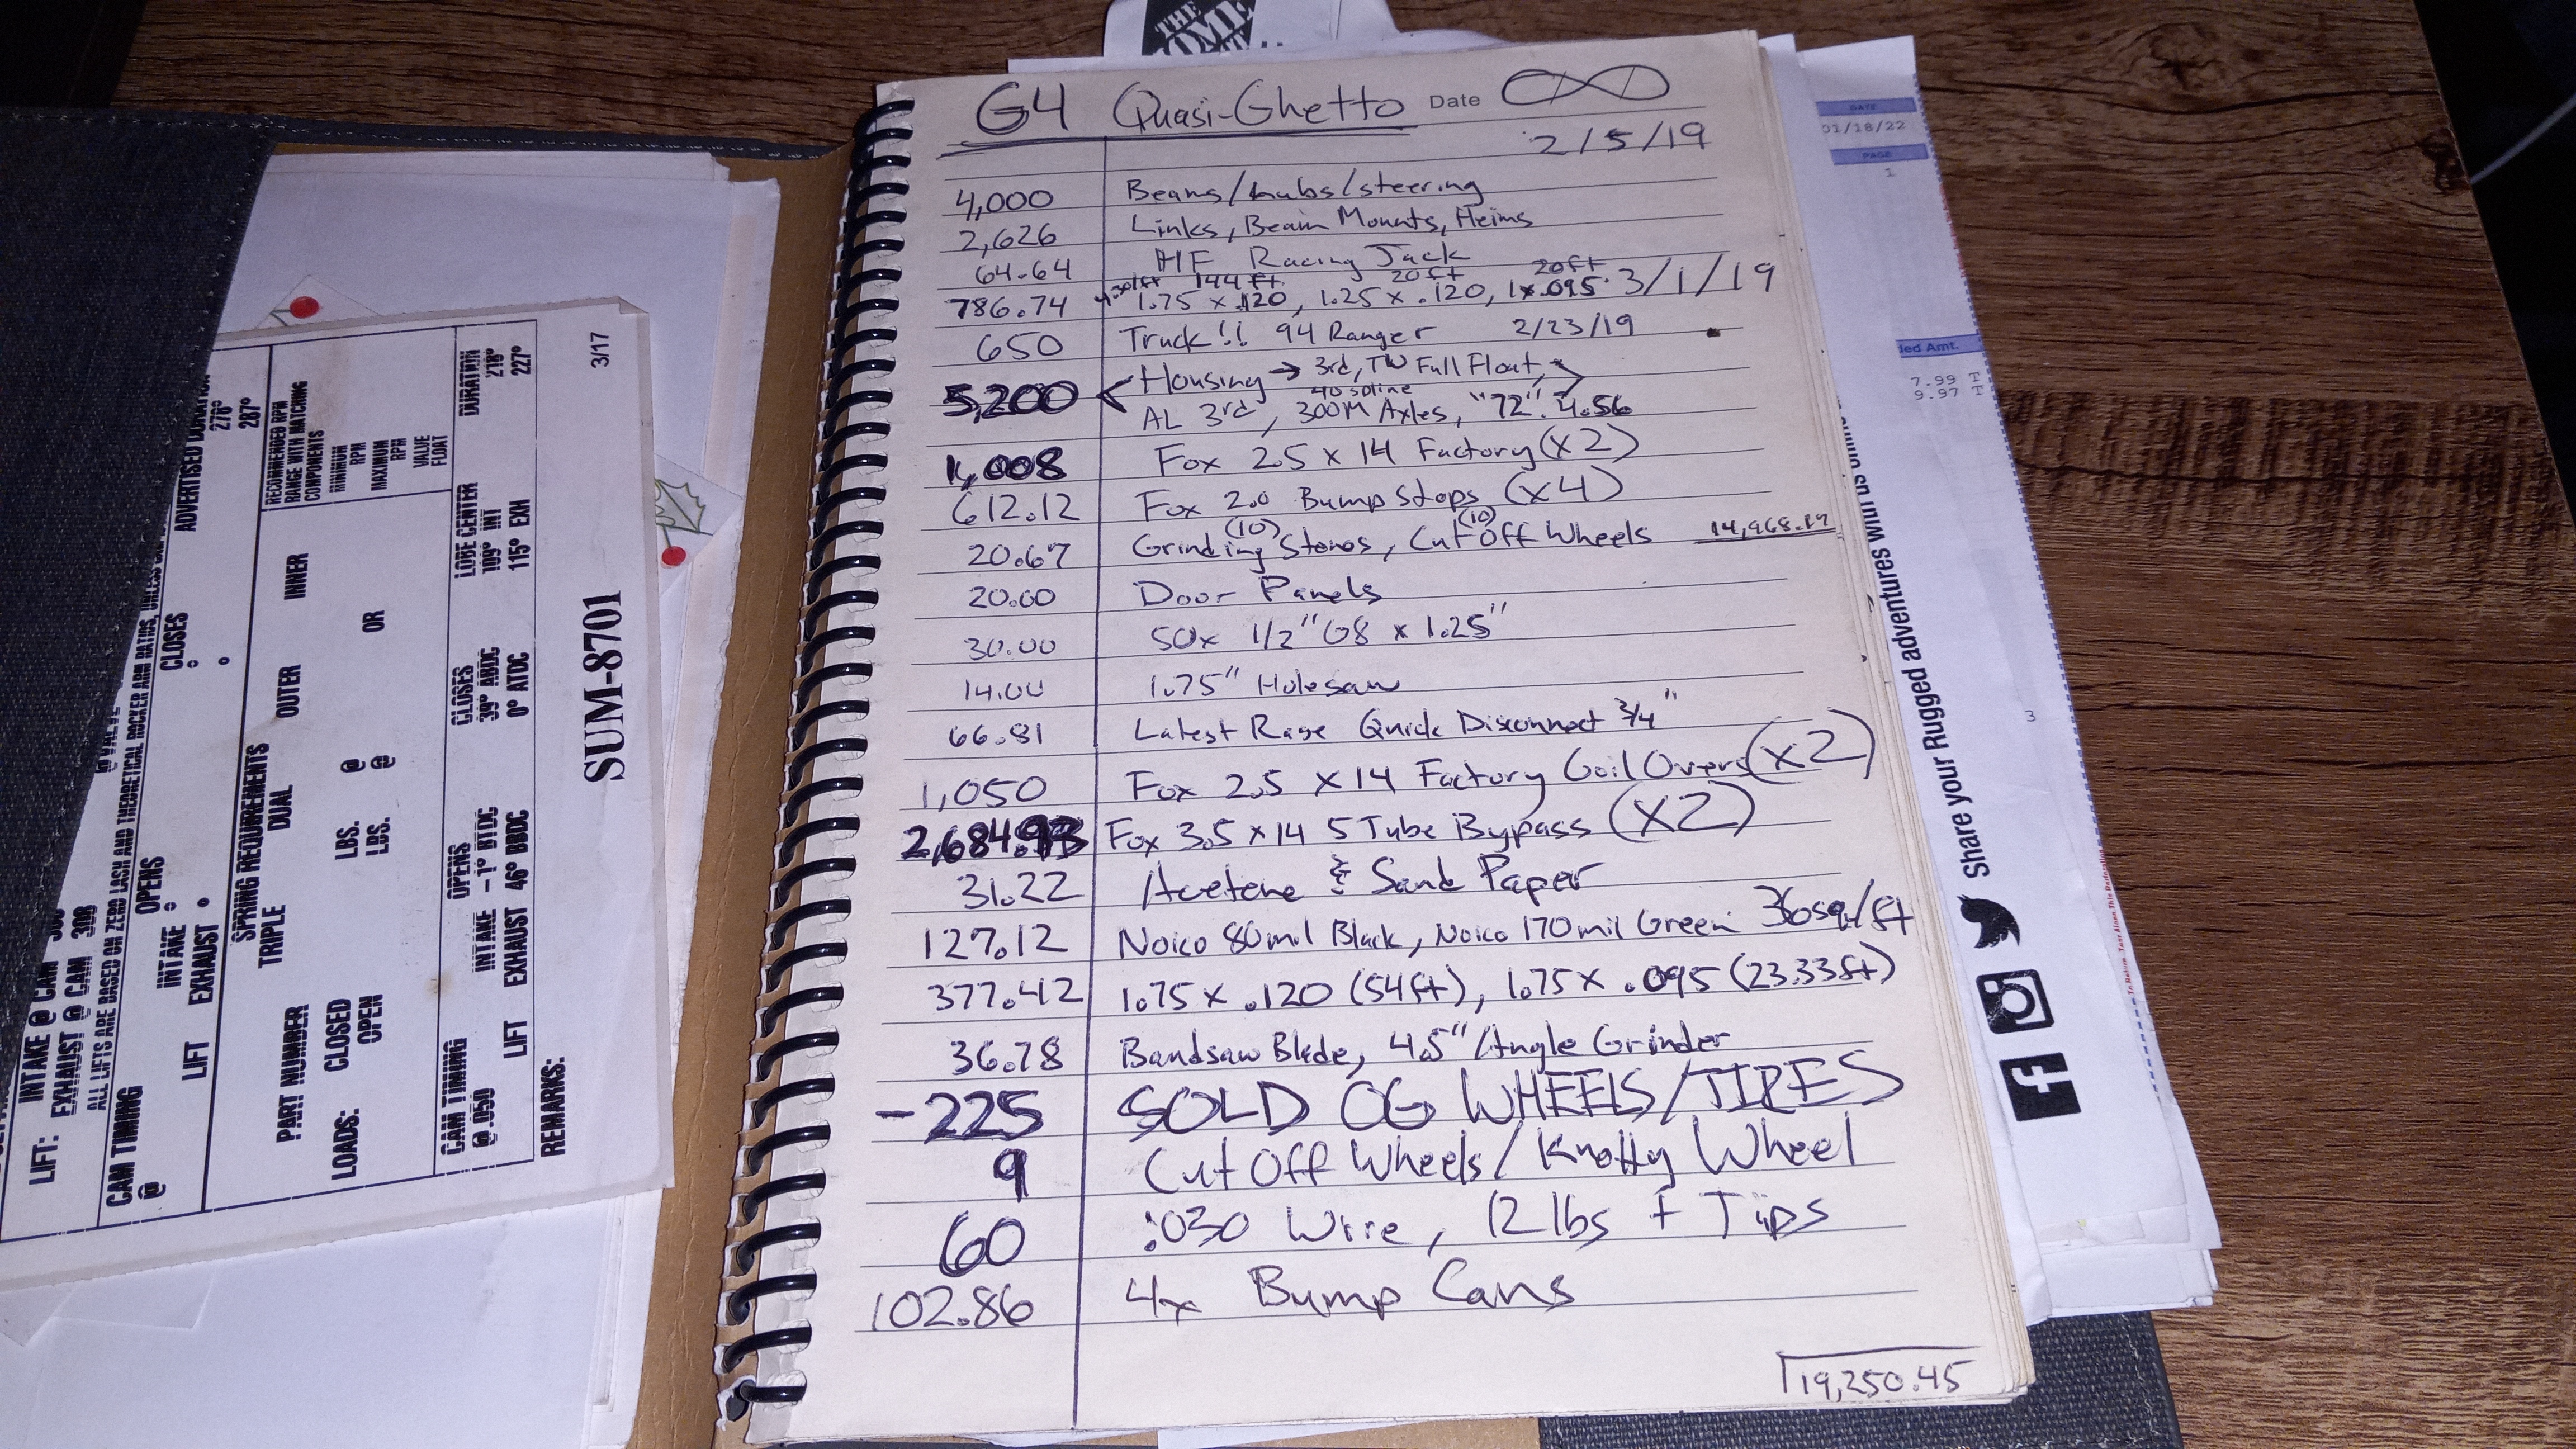 THE
G4 Quasi-Ghetto Date
2/5/19
4,000 Beams/hubs/steering
2,626 Links, Beam Mounts, Heims
64.64 HF Racing Jack
144ft. 20ft 20ft
786.74 1.75 x .120, 1.25 x .120, 1x.095 3/1/19
650 Truck!! 94 Ranger 2/23/19
Housing → 3rd, TW Full Float,
5,200 40 spline
AL 3rd, 300M Axles, "72". 4.56
1,008 Fox 2.5 x 14 Factory (x2)
612.12 Fox 2.0 Bump Stops (x4)
(10) (10)
20.67 Grinding Stones, Cut Off Wheels 14,968.19
20.00 Door Panels
30.00 50x 1/2" G8 x 1.25"
14.00 1.75" Holesaw
66.81 Latest Rage Quick Disconnect 3/4"
1,050 Fox 2.5 x 14 Factory Coil Overs (x2)
2,684.93 Fox 3.5 x 14 5 Tube Bypass (x2)
31.22 Acetene & Sand Paper
127.12 Noico 80mil Black, Noico 170mil Green 36sq/ft
377.42 1.75 x .120 (54ft), 1.75 x .095 (23.33ft)
36.78 Bandsaw Blade, 4.5" Angle Grinder
-225 SOLD OG WHEELS/TIRES
9 Cut Off Wheels/Knotty Wheel
60 .030 Wire, 12 lbs + Tips
102.86 4x Bump Cans
19,250.45
DATE
01/18/22
PAGE
1
Amt.
7.99 T
9.97 T
3
Share your Rugged adventures with us
3/17
SUM-8701
ADVERTISED
276°
287°
RECOMMENDED RPM
RANGE WITH MATCHING
COMPONENTS
MINIMUM
RPM
MAXIMUM
RPM
VALVE
FLOAT
DURATION
218°
227°
LOBE CENTER
109° INT
115° EXH
CLOSES
39° ABDC
0° ATDC
OPENS
INTAKE -1° BTDC
EXHAUST 46° BBDC
LIFT
CAM TIMING
@ .050
REMARKS:
SPRING REQUIREMENTS
TRIPLE DUAL OUTER INNER
PART NUMBER
LOADS: CLOSED LBS. @ OR
OPEN LBS. @
LIFT: INTAKE @ CAM
EXHAUST @ CAM 308
ALL LIFTS ARE BASED ON ZERO LASH AND THEORETICAL ROCKER ARM RATIOS, UNLESS
CAM TIMING OPENS CLOSES
@
LIFT INTAKE
EXHAUST